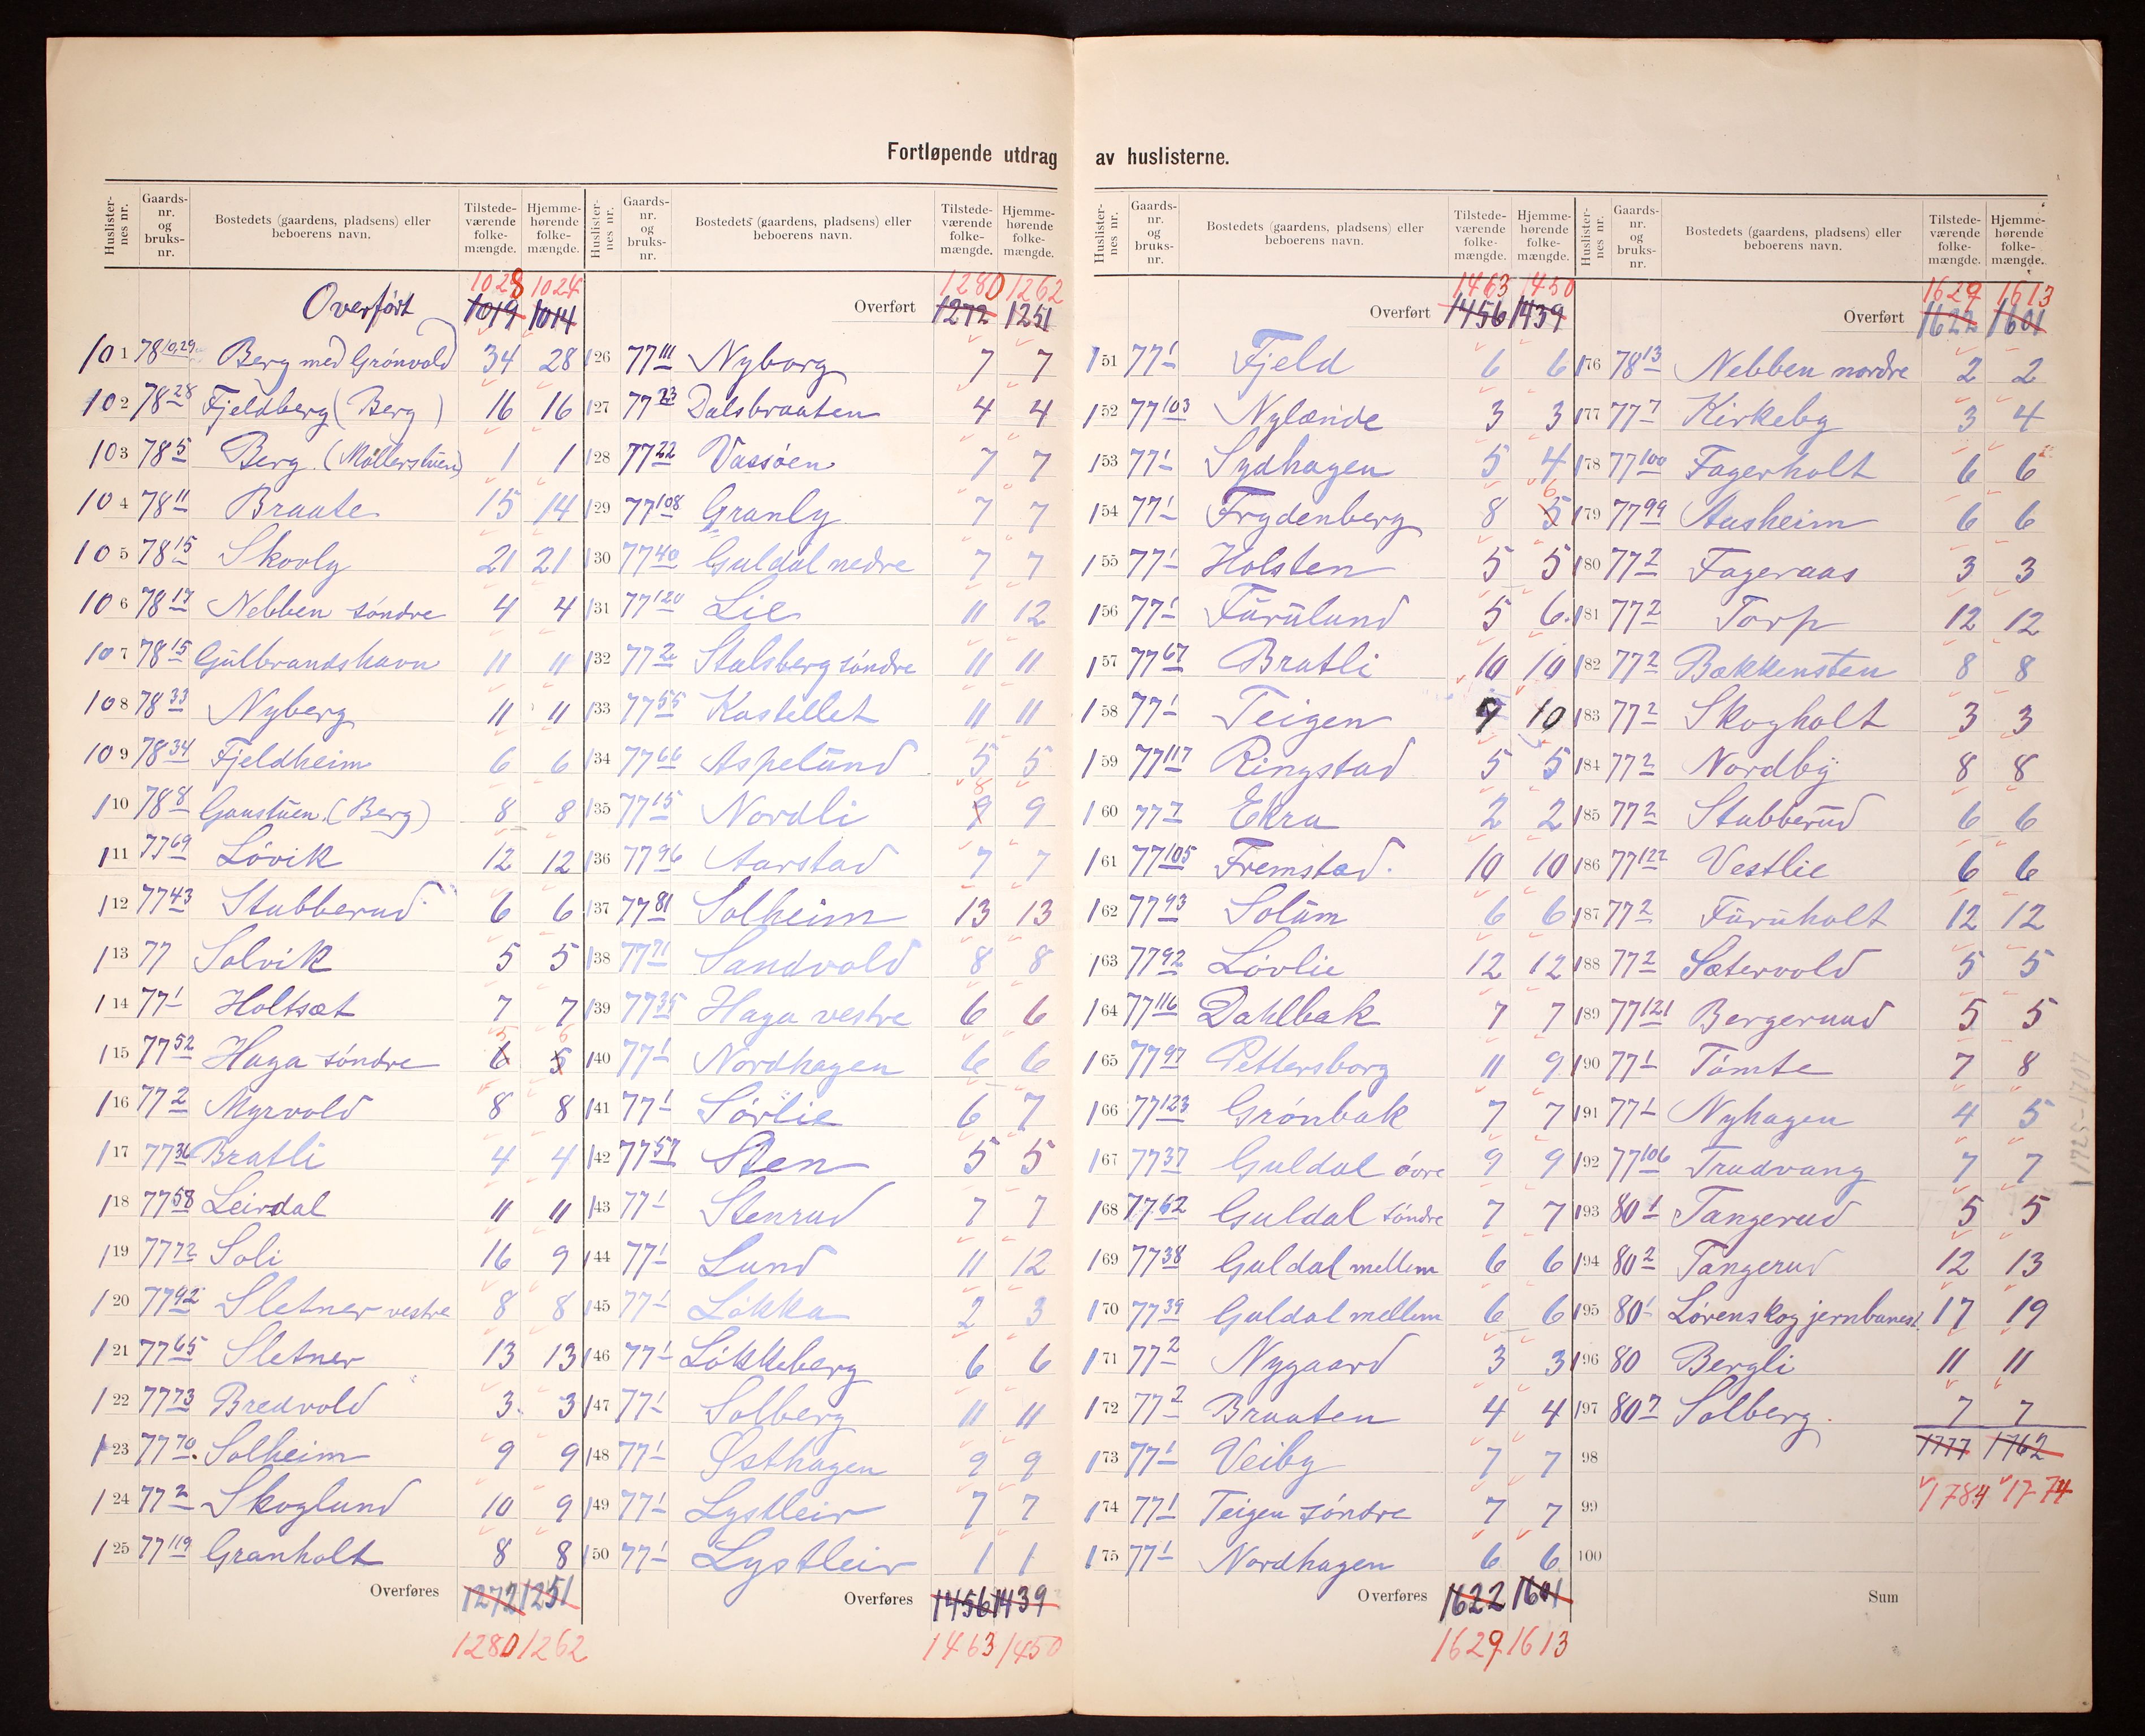 Fortløpende utdrag av huslisterne.
Huslister-nes nr. Gaards-nr. og bruks-nr. Bostedets (gaardens, pladsens) eller beboerens navn. Tilstede-værende folke-mængde. Hjemme-hørende folke-mængde.
1028 1024
Overført 1019 1014
101 78 10,29 Berg med Grønvold 34 28
102 78 28 Fjeldberg (Berg) 16 16
103 78 5 Berg. (Møllerstuen) 1 1
104 78 11 Braate 15 14
105 78 15 Skovly 21 21
106 78 17 Nebben søndre 4 4
107 78 15 Gulbrandshavn 11 11
108 78 33 Nyberg 11 11
109 78 34 Fjeldheim 6 6
110 78 8 Gaustuen (Berg) 8 8
111 77 69 Løvik 12 12
112 77 43 Stubberud 6 6
113 77 Solvik 5 5
114 77 1 Holtsæt 7 7
5 6
115 77 52 Haga søndre 6 5
116 77 2 Myrvold 8 8
117 77 36 Bratli 4 4
118 77 58 Leirdal 11 11
119 77 72 Soli 16 9
120 77 92 Sletner vestre 8 8
121 77 65 Sletner 13 13
122 77 73 Bredvold 3 3
123 77 70 Solheim 9 9
124 77 2 Skoglund 10 9
125 77 119 Granholt 8 8
Overføres 1272 1251
1280 1262
Huslister-nes nr. Gaards-nr. og bruks-nr. Bostedets (gaardens, pladsens) eller beboerens navn. Tilstede-værende folke-mængde. Hjemme-hørende folke-mængde.
1280 1262
Overført 1272 1251
126 77 111 Nyborg 7 7
127 77 23 Dalsbraaten 4 4
128 77 22 Vassøen 7 7
129 77 108 Granly 7 7
130 77 40 Guldal nedre 7 7
131 77 120 Lie 11 12
132 77 2 Stalsberg søndre 11 11
133 77 55 Kastellet 11 11
134 77 66 Aspelund 5 5
8
135 77 15 Nordli 9 9
136 77 96 Aarstad 7 7
137 77 81 Solheim 13 13
138 77 71 Sandvold 8 8
139 77 35 Haga vestre 6 6
140 77 1 Nordhagen 6 6
141 77 1 Sørlie 6 7
142 77 57 Sten 5 5
143 77 1 Stenrud 7 7
144 77 1 Lund 11 12
145 77 1 Løkka 2 3
146 77 1 Løkkeberg 6 6
147 77 1 Solberg 11 11
148 77 1 Østhagen 9 9
149 77 1 Lystleir 7 7
150 77 1 Lystleir 1 1
Overføres 1456 1439
1463 1450
Huslister-nes nr. Gaards-nr. og bruks-nr. Bostedets (gaardens, pladsens) eller beboerens navn. Tilstede-værende folke-mængde. Hjemme-hørende folke-mængde.
1463 1450
Overført 1456 1439
151 77 1 Fjeld 6 6
152 77 103 Nylænde 3 3
153 77 1 Sydhagen 5 4
6
154 77 1 Frydenberg 8 5
155 77 1 Holsten 5 5
156 77 1 Furulund 5 6
157 77 67 Bratli 10 10
158 77 1 Teigen 9 10
159 77 117 Ringstad 5 5
160 77 7 Ekra 2 2
161 77 105 Fremstad. 10 10
162 77 93 Solum 6 6
163 77 92 Løvlie 12 12
164 77 116 Dahlbak 7 7
165 77 97 Pettersborg 11 9
166 77 123 Grønbak 7 7
167 77 37 Guldal øvre 9 9
168 77 62 Guldal søndre 7 7
169 77 38 Guldal mellem 6 6
170 77 39 Guldal mellem 6 6
171 77 2 Nygaard 3 3
172 77 2 Braaten 4 4
173 77 1 Veiby 7 7
174 77 1 Teigen søndre 7 7
175 77 1 Nordhagen 6 6
Overføres 1622 1601
1629 1613
Huslister-nes nr. Gaards-nr. og bruks-nr. Bostedets (gaardens, pladsens) eller beboerens navn. Tilstede-værende folke-mængde. Hjemme-hørende folke-mængde.
1629 1613
Overført 1622 1601
176 78 13 Nebben nordre 2 2
177 77 7 Kirkeby 3 4
178 77 100 Fagerholt 6 6
179 77 99 Aasheim 6 6
180 77 2 Fageraas 3 3
181 77 2 Torp 12 12
182 77 2 Bækkensten 8 8
183 77 2 Skogholt 3 3
184 77 2 Nordby 8 8
185 77 2 Stubberud 6 6
186 77 122 Vestlie 6 6
187 77 2 Furuholt 12 12
188 77 2 Sætervold 5 5
189 77 121 Bergeruud 5 5
190 77 1 Tømte 7 8
191 77 1 Nyhagen 4 5
192 77 106 Tradvang 7 7
193 80 1 Tangerud 5 5
194 80 2 Tangerud 12 13
195 80 1 Lørenskog jernbanest. 17 19
196 80 Bergli 11 11
197 80 7 Solberg. 7 7
1777 1762
98
1784 1774
99
100
Sum